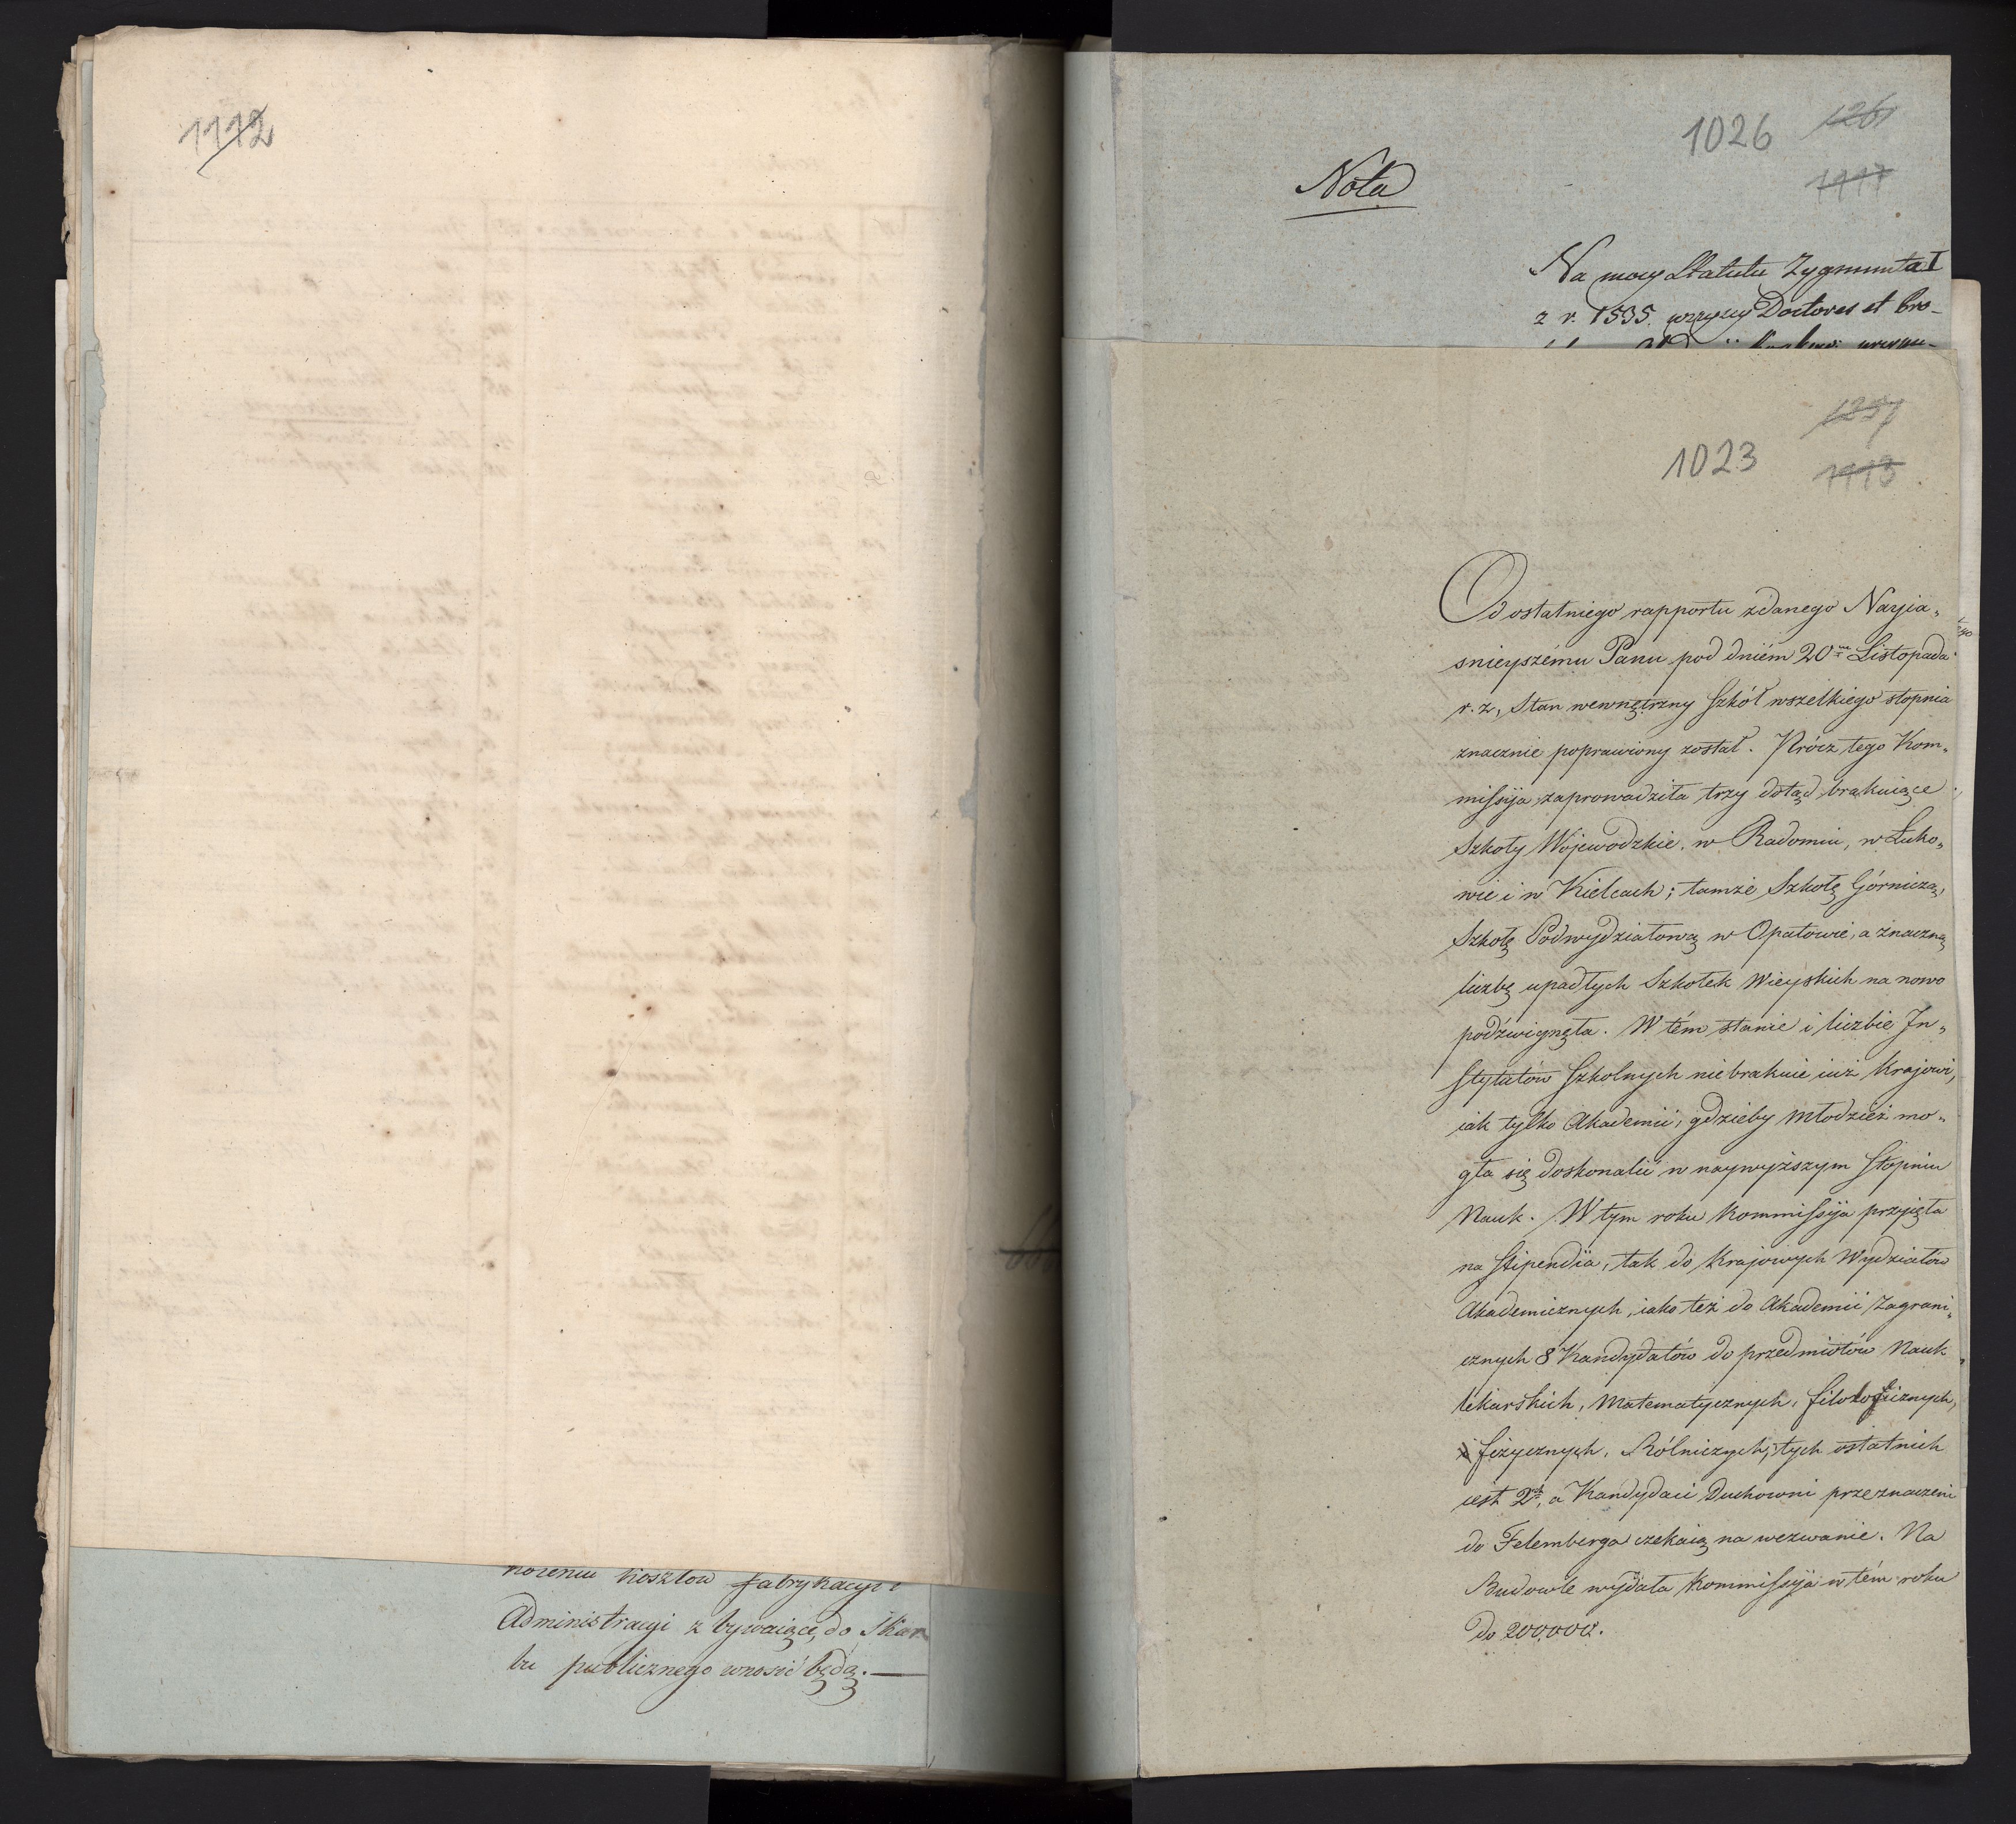 1112
koieniu kosztow fabrykacyi i
Administracyi zbywaiące, do Skar
bu publicznego wnosić będą. —
1026
1261
1117
Nota
Na mocy Statutu Zygmunta I
z r. 1535. wszyscy Doctores et Pro-
1023
1113
Od ostatniego rapportu zdanego Nayia„
snieyszému Panu pod dniém 20m Listopada
r. z, Stan wewnętrzny Szkół wszelkiego stopnia
znacznie poprawiony został. Prócz tego Kom„
missyja zaprowadziła trzy dotąd brakuiące
Szkoły Wojewodzkie. w Radomiu, w Łuko„
wie i w Kielcach; tamże Szkołę Górniczą,
Szkołę Podwydziałową w Opatowie, a znaczną
liczbę upadłych Szkołek Wieyskich na nowo
podźwignęła. W tém stanie i liczbie In„
stytutów Szkolnych nie brakuie iuż Krajowi,
iak tylko Akademii, gdzieby Młodzież mo„
gła się doskonalić w naywyższym Stopniu
Nauk. W tym roku Kommissyja przyięła
na Stipendia, tak do Krajowych Wydziałów
Akademicznych, iako też do Akademii Zagrani„
cznych 8 Kandydatów do przedmiotów Nauk
lekarskich, Matematycznych, filologicznych,
fizycznych, Rólniczych, tych ostatnich
iest 2ch, a Kandydaci Duchowni przeznaczeni
do Felemberga czekaią na wezwanie. Na
Budowle wydała Kommissyja w tém roku
do 200000.